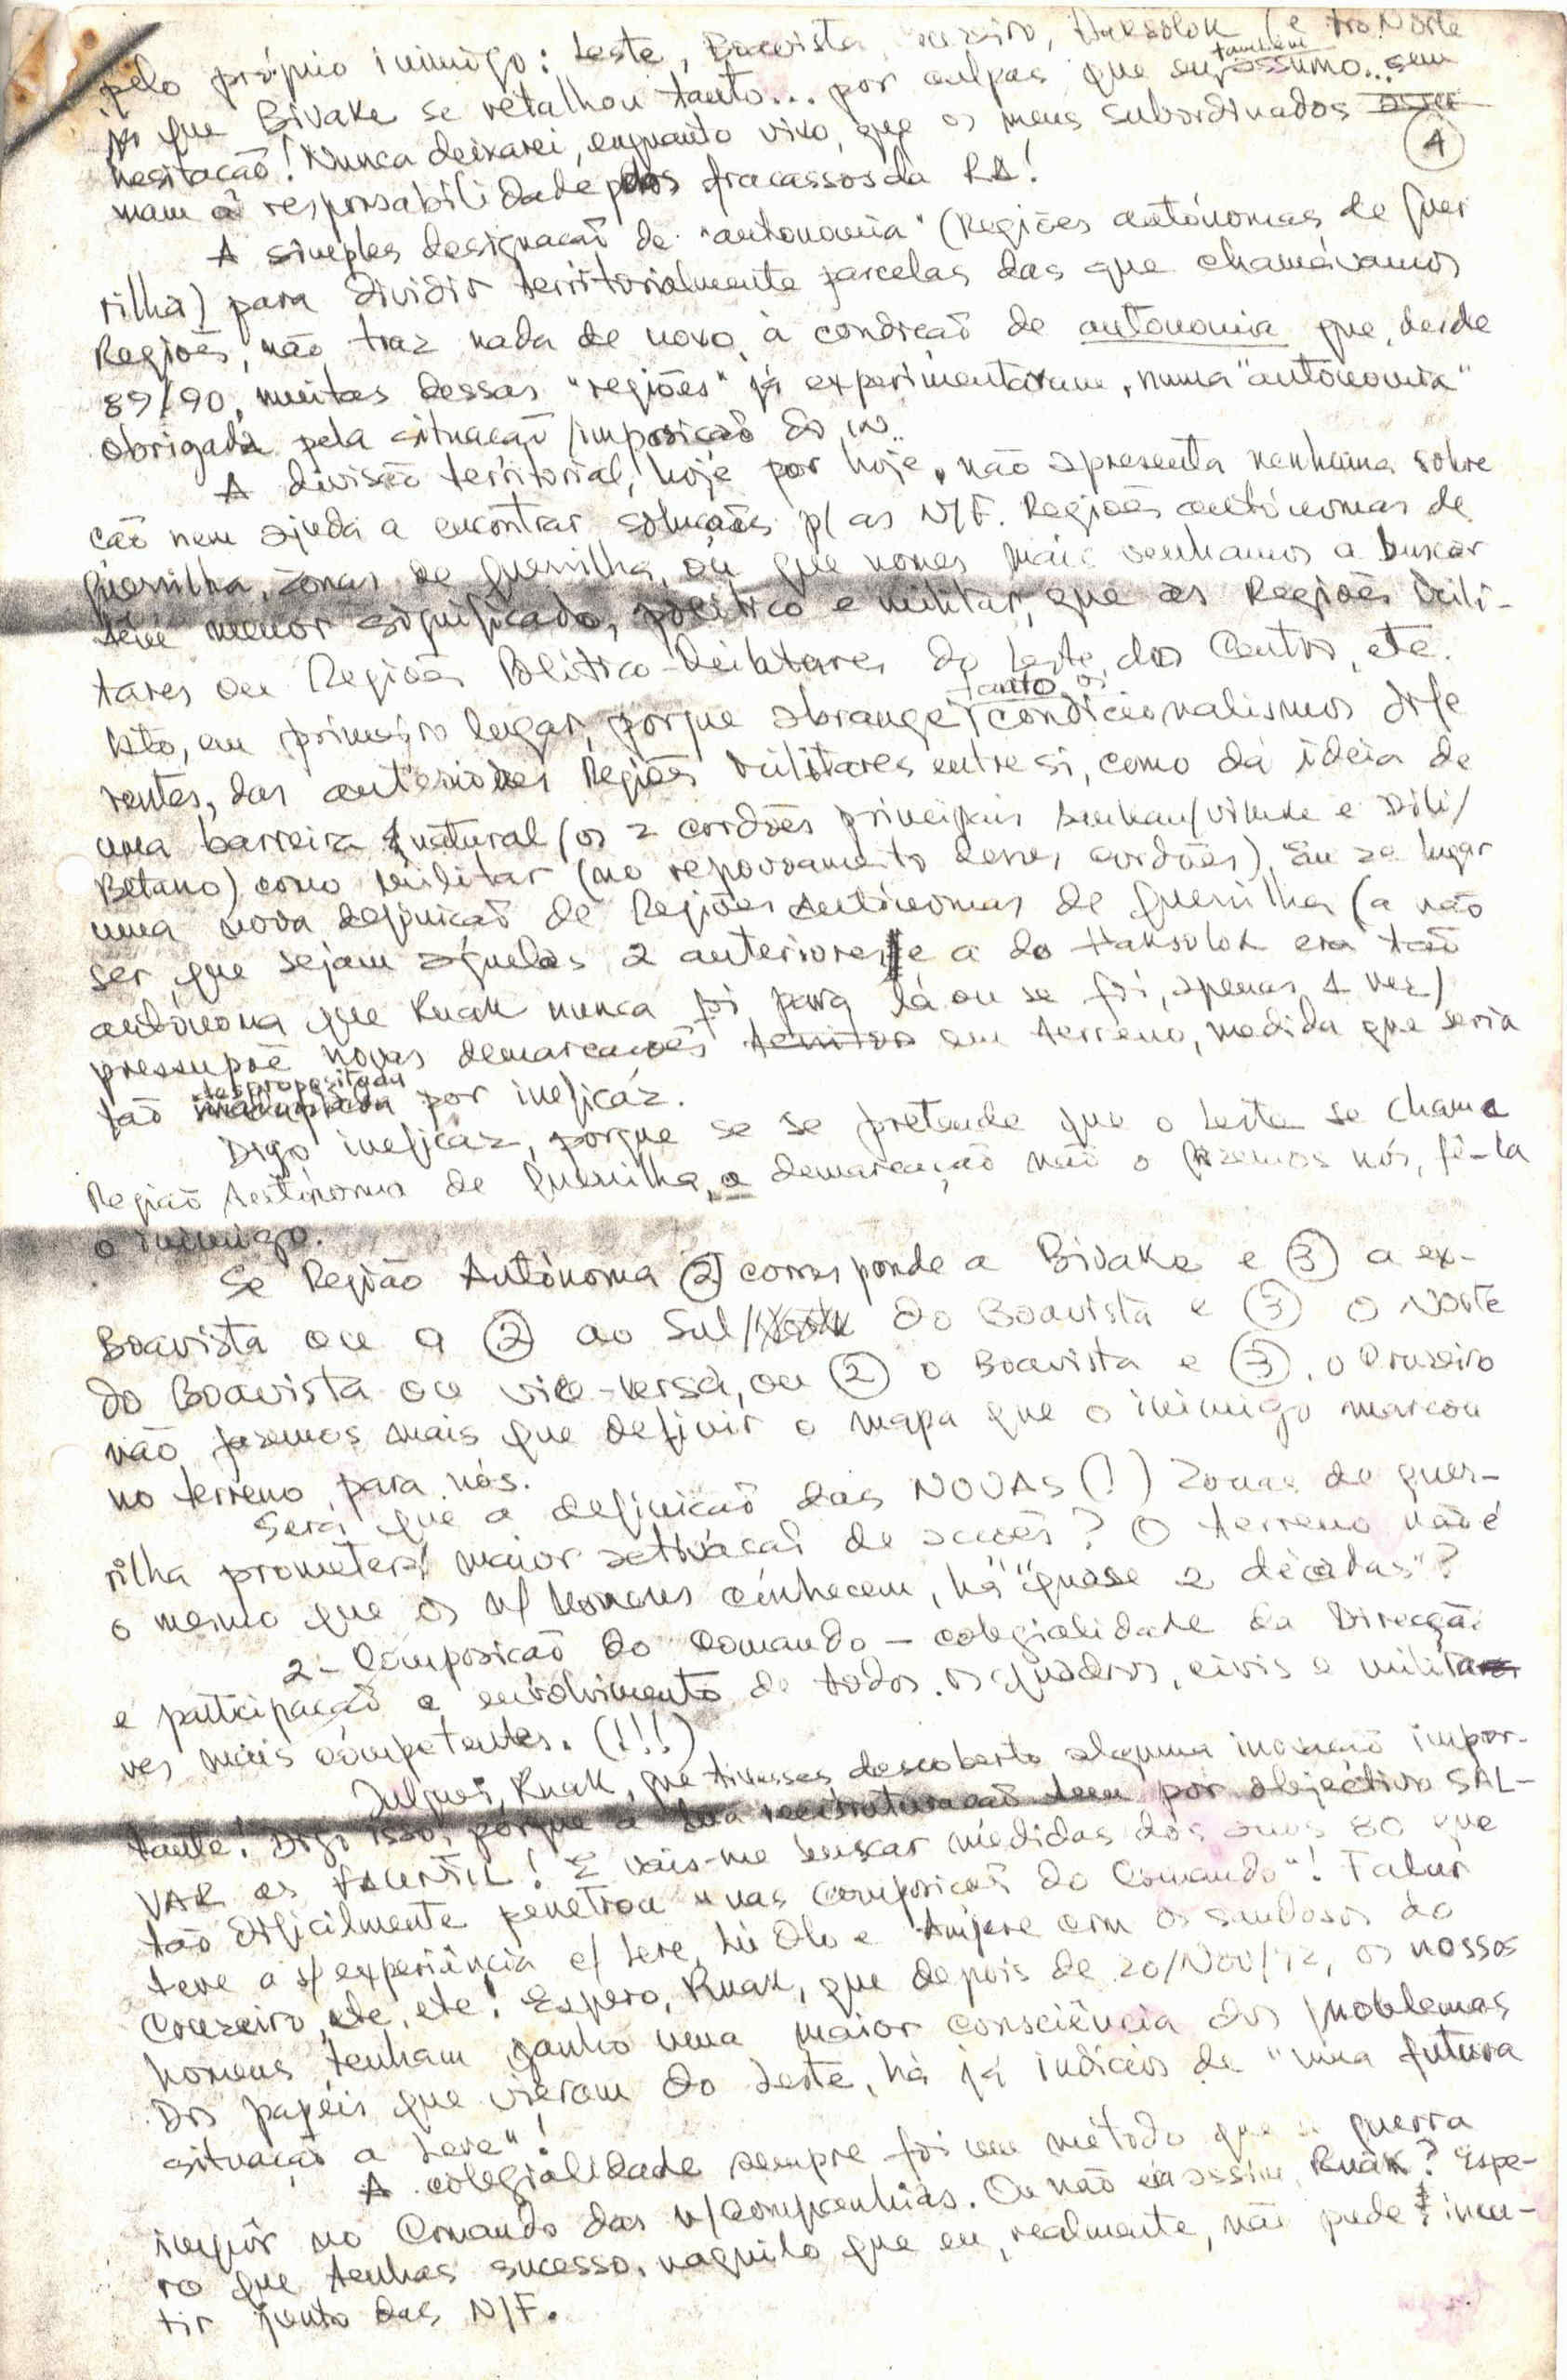 pelo próprio inimigo: Leste, Boavista, Cruzeiro, Haksolok (e no Norte
já que Bivake se retalhou tanto... por culpas que também eu assumo... sem
hesitação! Nunca deixarei, enquanto vivo, que os meus subordinados
4
mam a responsabilidade pelos fracassos da RA!
A simples designação de "autonomia" (Regiões autónomas de guer
rilha) para dividir territorialmente parcelas das que chamávamos
Regiões, não traz nada de novo à condição de autonomia que, desde
89/90, muitas dessas "regiões" já experimentaram, numa "autonomia"
obrigada pela situação/imposição do in..
A divisão territorial, hoje por hoje, não apresenta nenhuma
ção nem ajuda a encontrar soluções p/ as N/F. Regiões autónomas de
guerrilha, zonas de guerrilha, ou que nomes mais venhamos a buscar
têm menor significado, político e militar, que as Regiões Mili-
tares ou Regiões Político-Militares do Leste, dos Centros, etc.
Isto, em primeiro lugar, porque abrange tanto os condicionalismos dife
rentes, das anteriores Regiões Militares entre si, como dá ideia de
uma barreira natural (os 2 cordões principais e Dili/
Betano) como militar (no repovoamento desses cordões). Em 2º lugar
uma nova definição de Regiões Autónomas de guerrilha (a não
ser que sejam aquelas 2 anteriores e a do Haksolok era tão
autónoma que Ruak nunca foi para lá ou se foi, apenas 1 vez)
pressupõe novas demarcações em terreno, medida que seria
tão despropositada por ineficaz.
Digo ineficaz, porque se se pretende que o Leste se chame
Região Autónoma de guerrilha, a demarcação não o fizemos nós, fê-la
o inimigo.
Se Região Autónoma 2 corresponde a Bivake e 3 a ex-
Boavista ou a 2 ao Sul/ do Boavista e 3 o Norte
do Boavista ou vice-versa, ou 2 o Boavista e 3, o Cruzeiro
não fazemos mais que definir o mapa que o inimigo marcou
no terreno, para nós.
Será que a definição das NOVAS (!) zonas de guer-
rilha prometerá maior activação de acções? O terreno não é
o mesmo que os n/ homens conhecem, há "quase 2 décadas"?
2- Composição do Comando - colegialidade da Direcção
e participação e envolvimento de todos os quadros, civis e milita
res mais competentes. (!!!)
Julguei, Ruak, que tivesses descoberto alguma inovação impor-
tante! Digo isso, porque a tua reestruturação tem por objectivo SAL-
VAR as FALINTIL! E vais-me buscar medidas dos anos 80 que
tão dificilmente penetrou "nas composições do Comando"! Falur
teve a s/ experiência c/ Lere, Lú Olo e com os saudosos do
Cruzeiro, etc, etc! Espero, Ruak, que depois de 20/Nov/92, os nossos
homens tenham ganho uma maior consciência dos problemas
Dos papéis que vieram do Leste, há já indícios de "uma futura
situação a Lere"!
A colegialidade sempre foi um método que a guerra
impôr no Comando das n/ companhias. Ou não era assim, Ruak? Espe-
ro que tenhas sucesso, naquilo que eu, realmente, não pude incu-
tir junto das N/F.